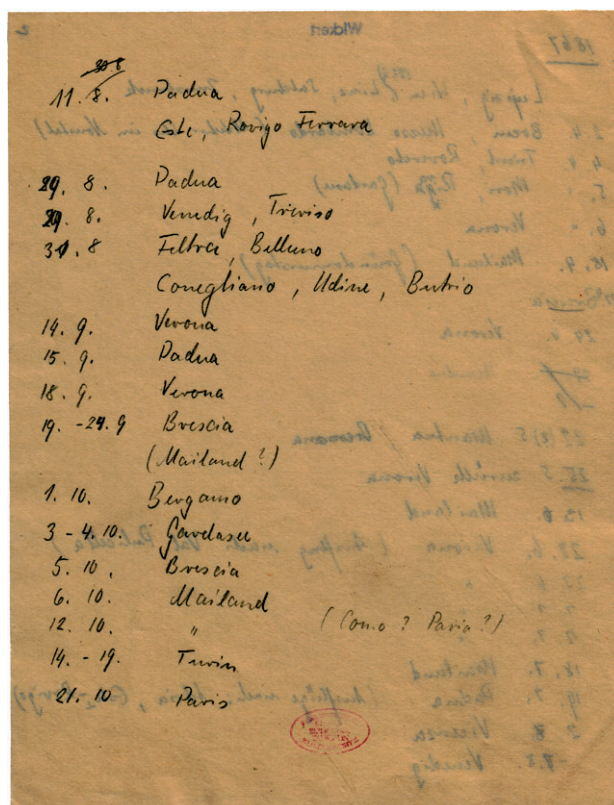 11. 8. Padua
Este, Rovigo Ferrara
29. 8. Padua
29. 8. Venedig, Treviso
31. 8 Feltre, Belluno
Conegliano, Udine, Butrio
14. 9. Verona
15. 9. Padua
18. 9. Verona
19. - 24. 9 Brescia
(Mailand ?)
1. 10. Bergamo
3 - 4. 10. Gardasee
5. 10. Brescia
6. 10. Mailand
12. 10. " (Como ? Pavia ?)
14. - 19. Turin
21. 10 Paris